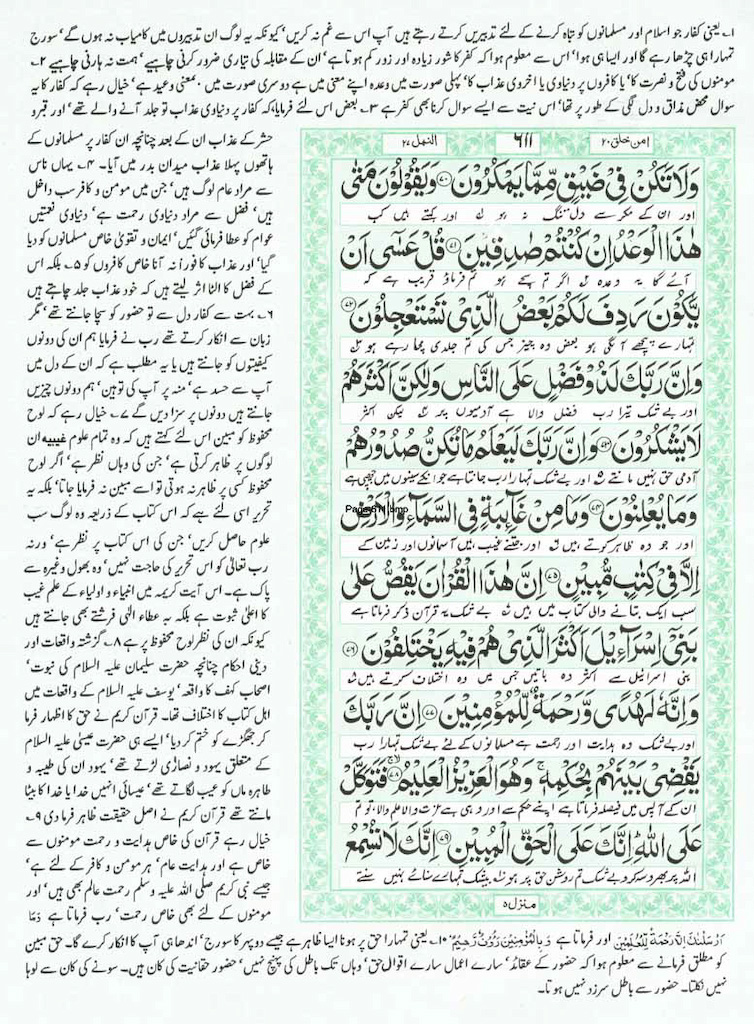 ۱۔ یعنی کفار جو اسلام اور مسلمانوں کو تباہ کرنے کے لئے تدبیریں کرتے رہتے ہیں آپ اس سے غم نہ کریں' کیونکہ یہ لوگ ان تدبیروں میں کامیاب نہ ہوں گے' سورج
تمہارا ہی چڑھا رہے گا اور ایسا ہی ہوا' اس سے معلوم ہوا کہ کفر کا شور زیادہ اور زور کم ہوتا ہے' ان کے مقابلہ کی تیاری ضرور کرنی چاہیے' ہمت نہ ہارنی چاہیے ۲۔
مومنوں کی فتح و نصرت کا' یا کافروں پر دنیاوی یا اخروی عذاب کا' پہلی صورت میں وعدہ اپنے معنی میں ہے دوسری صورت میں بمعنی وعید ہے' خیال رہے کہ کفار کا یہ
سوال محض مذاق و دل لگی کے طور پر تھا' اس نیت سے ایسے سوال کرنا بھی کفر ہے ۳۔ بعض اس لئے فرمایا' کہ کفار پر دنیاوی عذاب تو جلد آنے والے تھے' اور قبر و
حشر کے عذاب ان کے بعد چنانچہ ان کفار پر مسلمانوں کے
ہاتھوں پہلا عذاب میدان بدر میں آیا۔ ۴۔ یہاں ناس
سے مراد عام لوگ ہیں' جن میں مومن و کافر سب داخل
ہیں' فضل سے مراد دنیاوی رحمت ہے' دنیاوی نعمتیں
عوام کو عطا فرمائی گئیں' ایمان و تقویٰ خاص مسلمانوں کو دیا
گیا' اور عذاب کا فوراً نہ آنا خاص کافروں کو ۵۔ بلکہ اس
کے فضل کا الٹا اثر لیتے ہیں کہ خود عذاب جلد چاہتے ہیں
۶۔ بہت سے کفار دل سے تو حضور کو سچا جانتے تھے' مگر
زبان سے انکار کرتے تھے رب نے فرمایا ہم ان کی دونوں
کیفیتوں کو جانتے ہیں یا یہ مطلب ہے کہ ان کے دل میں
آپ سے حسد ہے' منہ پر آپ کی توہین' ہم دونوں چیزیں
جانتے ہیں دونوں پر سزا دیں گے ۷۔ خیال رہے کہ لوح
محفوظ کو مبین اس لئے کہتے ہیں کہ وہ تمام علوم غیبیہ ان
لوگوں پر ظاہر کرتی ہے' جن کی وہاں نظر ہے' اگر لوح
محفوظ کسی پر ظاہر نہ ہوتی تو اسے مبین نہ فرمایا جاتا' بلکہ یہ
تحریر اسی لئے ہے کہ اس کتاب کے ذریعہ وہ لوگ سب
علوم حاصل کریں' جن کی اس کتاب پر نظر ہے' ورنہ
رب تعالیٰ کو اس تحریر کی حاجت نہیں' وہ بھول وغیرہ سے
پاک ہے۔ اس آیت کریمہ میں انبیاء و اولیاء کے علم غیب
کا اعلیٰ ثبوت ہے بلکہ یہ عطاء الٰہی فرشتے بھی جانتے ہیں
کیونکہ ان کی نظر لوح محفوظ پر ہے ۸۔ گزشتہ واقعات اور
دینی احکام چنانچہ حضرت سلیمان علیہ السلام کی نبوت'
اصحاب کہف کا واقعہ' یوسف علیہ السلام کے واقعات میں
اہل کتاب کا اختلاف تھا۔ قرآن کریم نے حق کا اظہار فرما
کر جھگڑے کو ختم کر دیا' ایسے ہی حضرت عیسیٰ علیہ السلام
کے متعلق یہود و نصاریٰ لڑتے تھے' یہود ان کی طیبہ و
طاہرہ ماں کو عیب لگاتے تھے' عیسائی انہیں خدا یا خدا کا بیٹا
مانتے تھے قرآن کریم نے اصل حقیقت ظاہر فرما دی ۹۔
خیال رہے قرآن کی خاص ہدایت و رحمت مومنوں سے
خاص ہے اور ہدایت عام' ہر مومن و کافر کے لئے ہے'
جیسے نبی کریم صلی اللہ علیہ وسلم رحمت عالم بھی ہیں' اور
مومنوں کے لئے بھی خاص رحمت' رب فرماتا ہے وَمَا
امن خلق ۲۰
۶۱۱
النمل ۲۷
وَلَا تَكُنْ فِیْ ضَیْقٍ مِّمَّا یَمْكُرُوْنَ ﴿۷۰﴾ وَیَقُوْلُوْنَ مَتٰی
اور ان کے مکر سے دل تنگ نہ ہو اور کہتے ہیں کب
هٰذَا الْوَعْدُ اِنْ كُنْتُمْ صٰدِقِیْنَ ﴿۷۱﴾ قُلْ عَسٰۤی اَنْ
آئے گا یہ وعدہ اگر تم سچے ہو تم فرماؤ قریب ہے کہ
یَّكُوْنَ رَدِفَ لَكُمْ بَعْضُ الَّذِیْ تَسْتَعْجِلُوْنَ ﴿۷۲﴾
تمہارے پیچھے آ لگی ہو بعض وہ چیز جس کی تم جلدی مچا رہے ہو
وَاِنَّ رَبَّكَ لَذُوْ فَضْلٍ عَلَی النَّاسِ وَلٰكِنَّ اَكْثَرَهُمْ
اور بے شک تیرا رب فضل والا ہے آدمیوں پر لیکن اکثر
لَا یَشْكُرُوْنَ ﴿۷۳﴾ وَاِنَّ رَبَّكَ لَیَعْلَمُ مَا تُكِنُّ صُدُوْرُهُمْ
آدمی حق نہیں مانتے اور بے شک تمہارا رب جانتا ہے جو انکے سینوں میں چھپی ہے
وَمَا یُعْلِنُوْنَ ﴿۷۴﴾ وَمَا مِنْ غَآئِبَةٍ فِی السَّمَآءِ وَالْاَرْضِ
اور جو وہ ظاہر کرتے ہیں اور جتنے غیب ہیں آسمانوں اور زمین کے
اِلَّا فِیْ كِتٰبٍ مُّبِیْنٍ ﴿۷۵﴾ اِنَّ هٰذَا الْقُرْاٰنَ یَقُصُّ عَلٰی
سب ایک بتانے والی کتاب میں ہیں بے شک یہ قرآن ذکر فرماتا ہے
بَنِیْۤ اِسْرَآءِیْلَ اَكْثَرَ الَّذِیْ هُمْ فِیْهِ یَخْتَلِفُوْنَ ﴿۷۶﴾
بنی اسرائیل سے اکثر وہ باتیں جس میں وہ اختلاف کرتے ہیں
وَاِنَّهٗ لَهُدًی وَّرَحْمَةٌ لِّلْمُؤْمِنِیْنَ ﴿۷۷﴾ اِنَّ رَبَّكَ
اور بے شک وہ ہدایت اور رحمت ہے مسلمانوں کے لئے بے شک تمہارا رب
یَقْضِیْ بَیْنَهُمْ بِحُكْمِهٖ وَهُوَ الْعَزِیْزُ الْعَلِیْمُ ﴿۷۸﴾ فَتَوَكَّلْ
ان کے آپس میں فیصلہ فرماتا ہے اپنے حکم سے اور وہی ہے عزت والا علم والا، تو تم
عَلَی اللّٰهِ اِنَّكَ عَلَی الْحَقِّ الْمُبِیْنِ ﴿۷۹﴾ اِنَّكَ لَا تُسْمِعُ
اللہ پر بھروسہ کرو بے شک تم روشن حق پر ہو بیشک تمہارے سنائے نہیں سنتے
منزل ۵
اَرْسَلْنٰكَ اِلَّا رَحْمَةً لِّلْعٰلَمِیْنَ اور فرماتا ہے وَبِالْمُؤْمِنِیْنَ رَءُوْفٌ رَّحِیْمٌ ۱۰۔ یعنی تمہارا حق پر ہونا ایسا ظاہر ہے جیسے دوپہر کا سورج' اندھا ہی آپ کا انکار کرے گا۔ حق مبین
کو مطلق فرمانے سے معلوم ہوا کہ حضور کے عقائد' سارے اعمال سارے اقوال حق' وہاں تک باطل کی پہنچ نہیں' حضور حقانیت کی کان ہیں۔ سونے کی کان سے لوہا
نہیں نکلتا۔ حضور سے باطل سرزد نہیں ہوتا۔